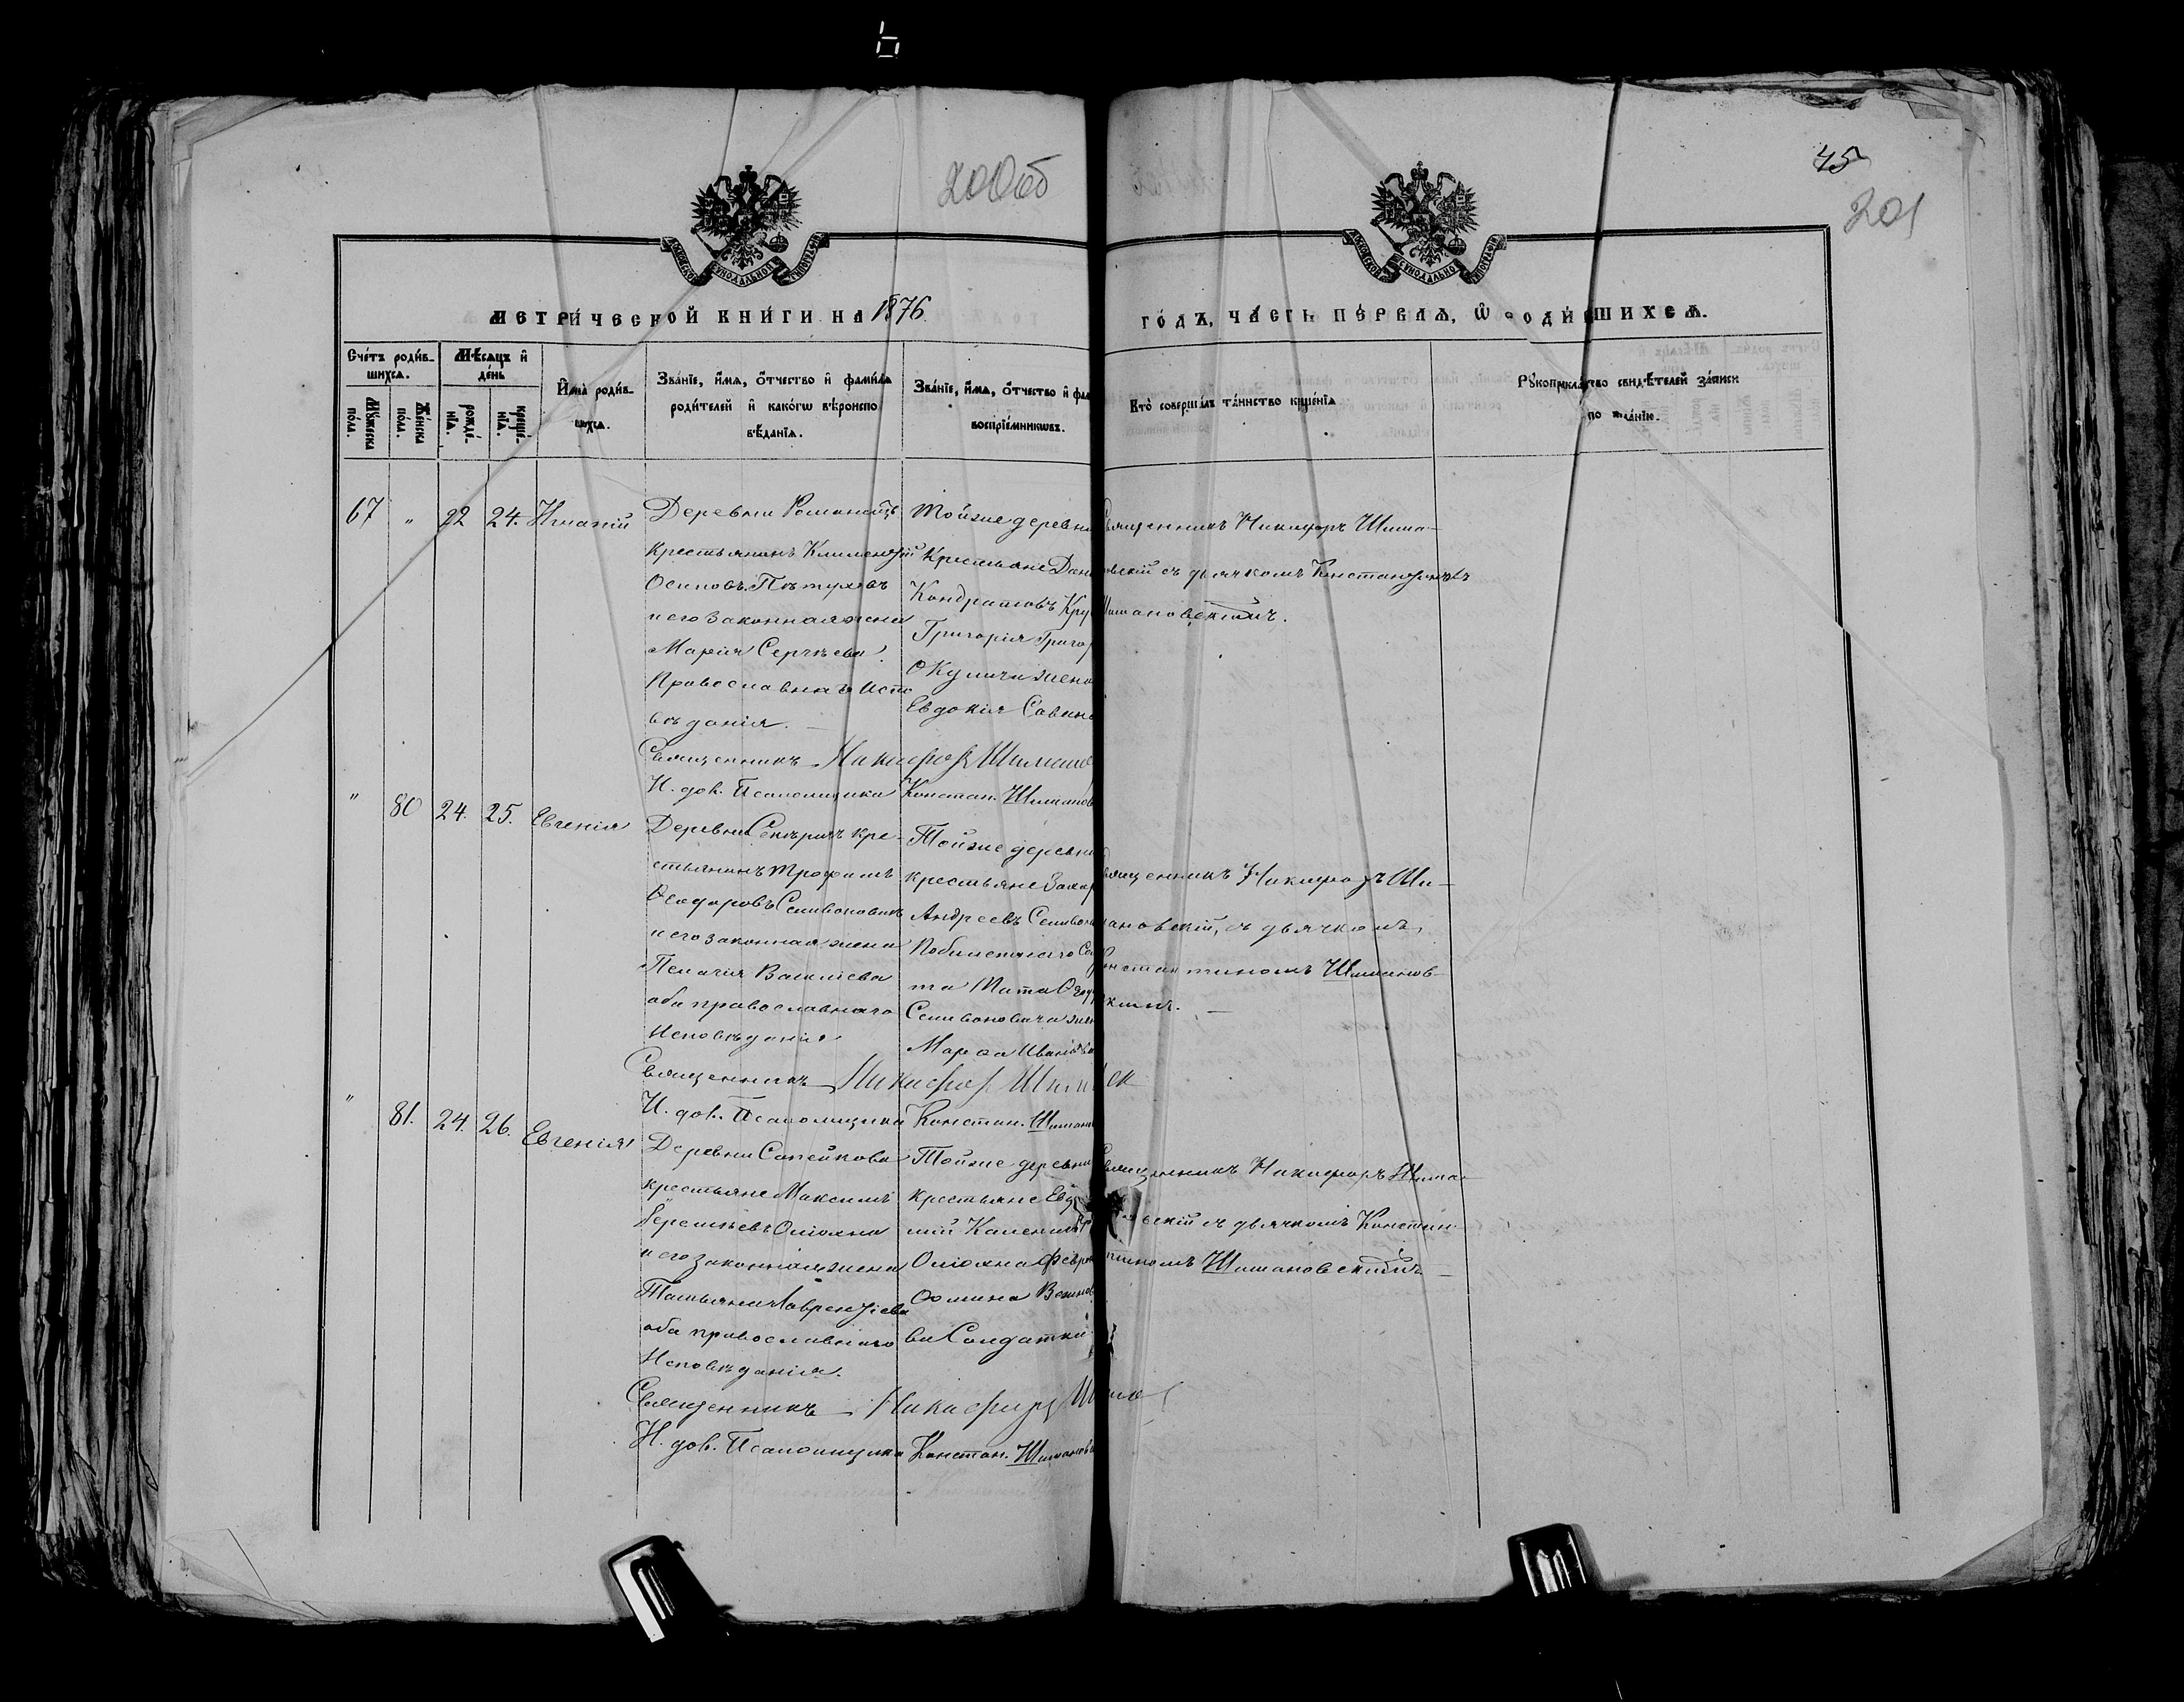 200об
45
201
МЕТРИ́ЧЕСКОЙ КНИ́ГИ НА 1876
ГО́ДЪ, ЧА́СТЬ ПЕ́РВАѦ, Ѡ РОДИ́ВШИХСѦ.
Сче́тъ роди́в-
шихсѧ.
Мѣ́сѧцъ и҆
де́нь
Мꙋ́жеска
по́ла.
Же́нска
по́ла.
рожде́-
нїѧ.
креще́-
нїѧ.
И҆́мѧ роди́в-
шихсѧ.
Зва́нїе, и҆́мѧ, ѻ҆́тчество и҆ фами́лїѧ
роди́телей и҆ како́гѡ вѣроиспо-
вѣ́данїѧ.
Зва́нїе, и҆́мѧ, ѻ҆́тчество и҆ фам
воспрїе́мникѡвъ.
Кто̀ соверша́лъ та́инство креще́нїѧ
Рꙋкоприкла́дство свидѣ́телей за́писи
по жела́нїю.
67 " 22 24. Игнатій
Деревни
крестьянинъ Климентій
Осиповъ Пѣтуховъ
и его законная жена
Марія Сергѣева
Православнаго испо
вѣданія.
Тойже деревни
Крестьяне Дани
Кондратовъ Кру
Григорія Григор
жена
Евдокія Савин
Священникъ Никифоръ Шима-
овскій съ дьячкомъ Константиномъ
Шимановскимъ.
Священникъ Никифоръ Шиманов
И. дов. Псаломщика Констан. Шиманов
" 80 24. 25. Евгенія
Деревни кре-
стьянинъ Трофимъ
Ѳеодоровъ Селивоновичъ
и его законная жена
Пелагія Василіева
оба православнаго
Исповѣданія
Тойже деревни
крестьяне Захар
Андреевъ Селивон
та Ѳеод
Селивоновича жен
Марѳа Иванова
Священникъ Никифоръ Ши-
мановскій, съ дьячкомъ
Константиномъ Шиманов-
скимъ.
Священникъ Никифоръ Шим
И. дов. Псаломщика Констан. Шиманов
" 81. 24. 26. Евгенія
Деревни Сапейкова
крестьяне Максимъ
и его законная жена
Татьяна Лаврентіева
оба православнаго
Исповѣданія.
Тойже деревни
крестьяне Евд
Ѳомина
ва Солдатка
Священникъ Никифоръ Шима-
новскій съ дьячкомъ Констан-
тиномъ Шимановскимъ
Священникъ Никифоръ Шима
И. дов. Псаломщика Констан. Шиманов